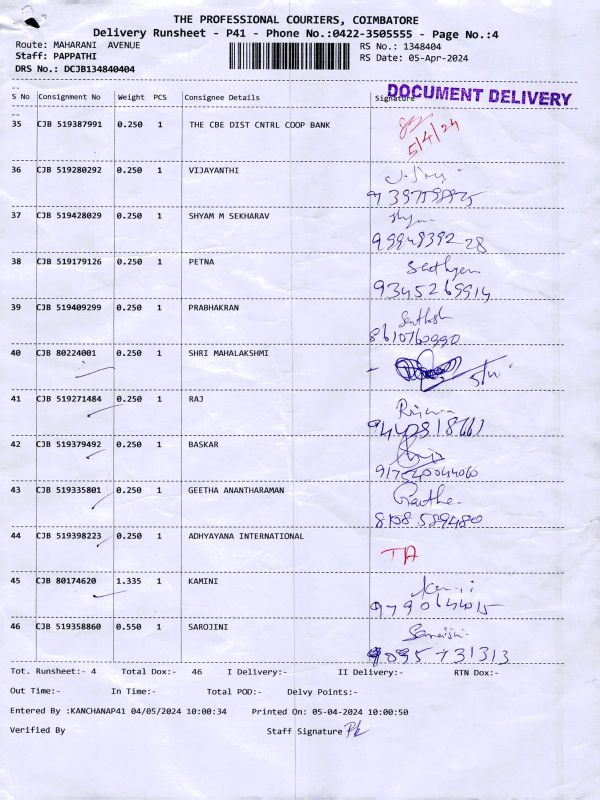 THE PROFESSIONAL COURIERS, COIMBATORE
Delivery Runsheet - P41 - Phone No.:0422-3505555 - Page No.:4
Route: MAHARANI AVENUE RS No.: 1348404
Staff: PAPPATHI RS Date: 05-Apr-2024
DRS No.: DCJB134840404
DOCUMENT DELIVERY
S No Consignment No Weight PCS Consignee Details Signature
35 CJB 519387991 0.250 1 THE CBE DIST CNTRL COOP BANK
5/4/24
36 CJB 519280292 0.250 1 VIJAYANTHI
37 CJB 519428029 0.250 1 SHYAM M SEKHARAV
9994939228
38 CJB 519179126 0.250 1 PETNA
Sathyan
9345269914
39 CJB 519409299 0.250 1 PRABHAKRAN
Santhosh
8610760990
40 CJB 80224001 0.250 1 SHRI MAHALAKSHMI
41 CJB 519271484 0.250 1 RAJ
42 CJB 519379492 0.250 1 BASKAR
43 CJB 519335801 0.250 1 GEETHA ANANTHARAMAN
Geetha
44 CJB 519398223 0.250 1 ADHYAYANA INTERNATIONAL
45 CJB 80174620 1.335 1 KAMINI
46 CJB 519358860 0.550 1 SAROJINI
9095731313
Tot. Runsheet:- 4 Total Dox:- 46 I Delivery:- II Delivery:- RTN Dox:-
Out Time:- In Time:- Total POD:- Delvy Points:-
Entered By :KANCHANAP41 04/05/2024 10:00:34 Printed On: 05-04-2024 10:00:50
Verified By Staff Signature